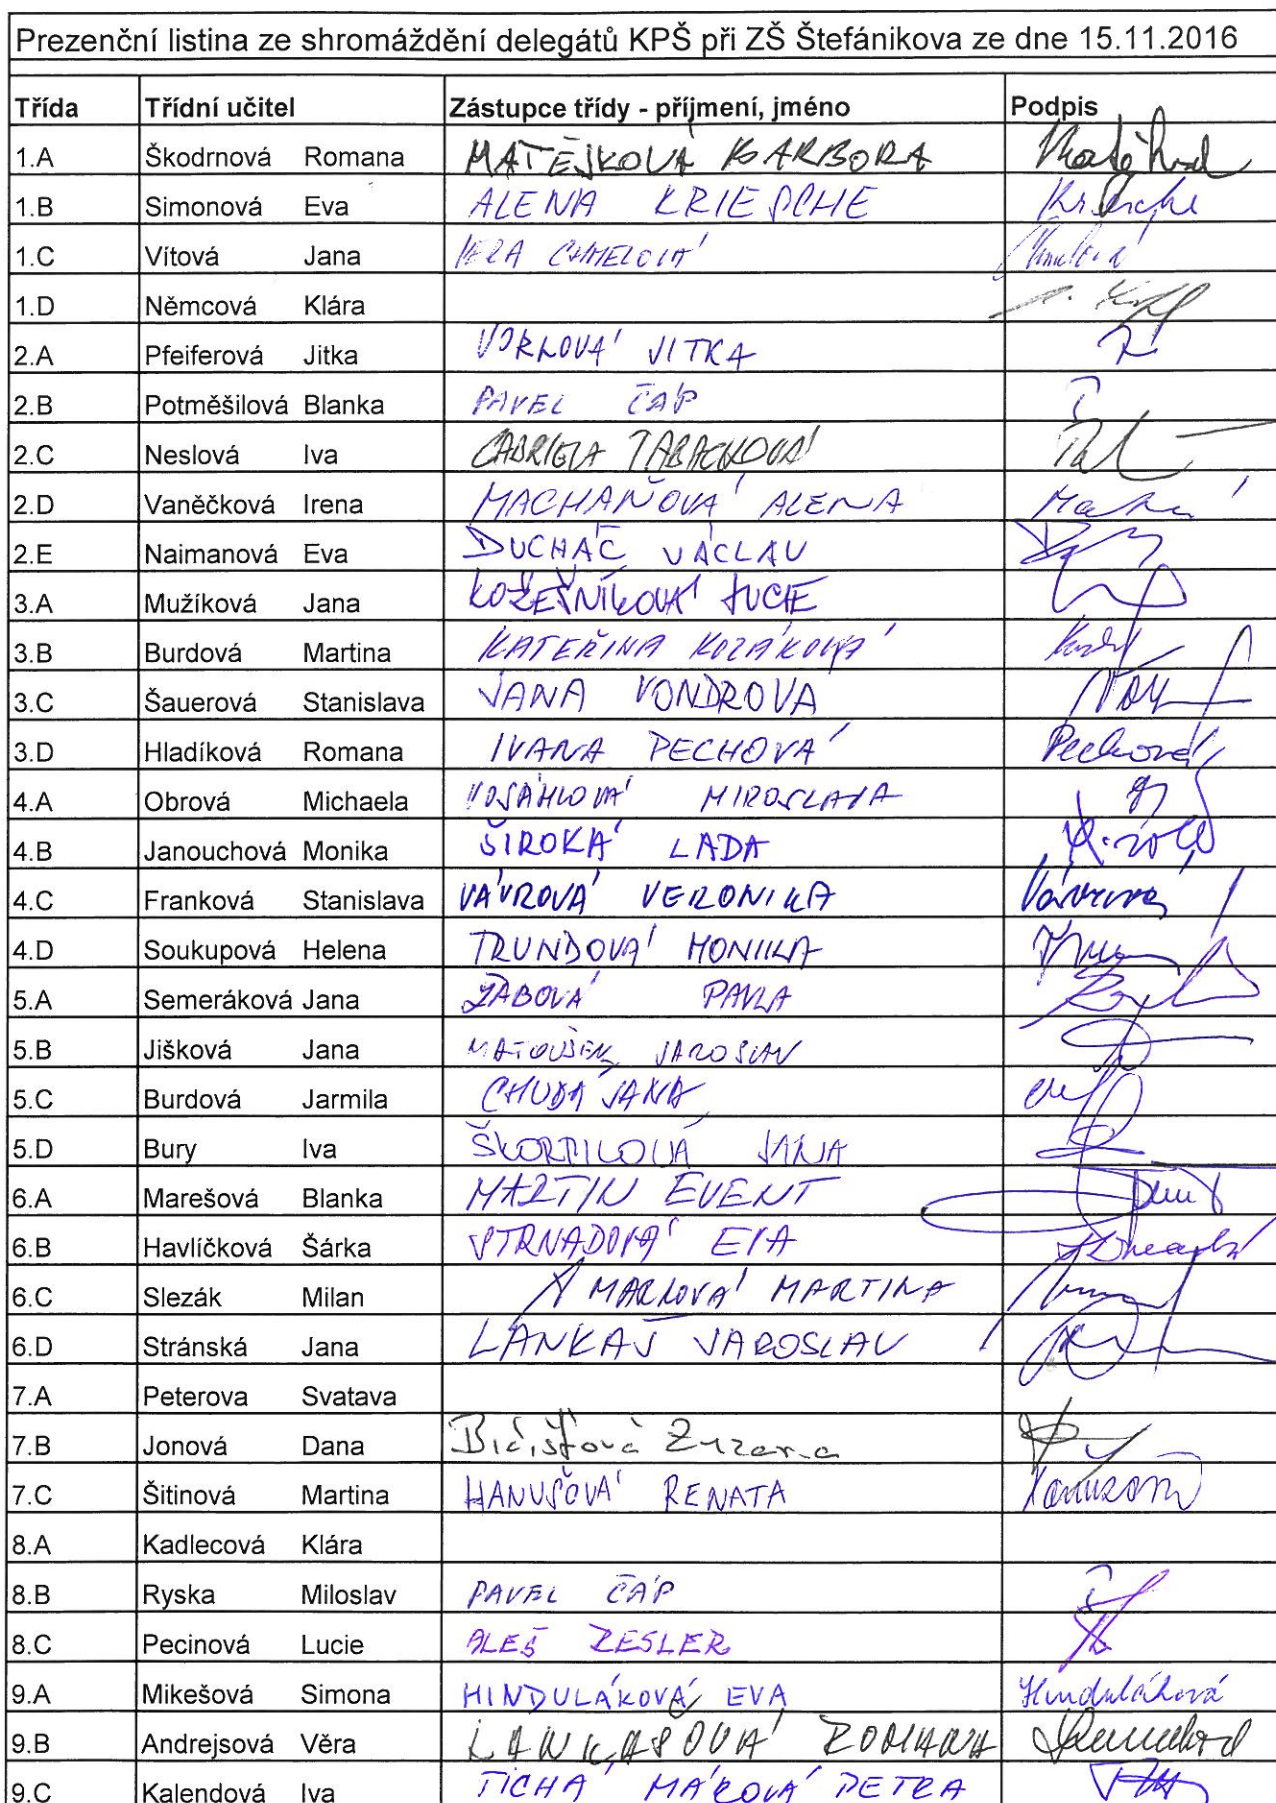 Prezenční listina ze shromáždění delegátů KPŠ při ZŠ Štefánikova ze dne 15.11.2016
Třída Třídní učitel Zástupce třídy - příjmení, jméno Podpis
1.A Škodrnová Romana MATĚJKOVÁ BARBORA
1.B Simonová Eva ALENA KRIESCHE
1.C Vítová Jana VĚRA CHMELOVÁ
1.D Němcová Klára
2.A Pfeiferová Jitka VORLOVÁ JITKA
2.B Potměšilová Blanka PAVEL ČÁP
2.C Neslová Iva GABRIELA
2.D Vaněčková Irena MACHAŇOVÁ ALENA
2.E Naimanová Eva DUCHÁČ VÁCLAV
3.A Mužíková Jana KOŽEŠNÍKOVÁ LUCIE
3.B Burdová Martina KATEŘINA KOZÁKOVÁ
3.C Šauerová Stanislava JANA VONDROVÁ
3.D Hladíková Romana IVANA PECHOVÁ Pechová
4.A Obrová Michaela VOSÁHLOVÁ MIROSLAVA
4.B Janouchová Monika ŠIROKÁ LADA
4.C Franková Stanislava VÁVROVÁ VERONIKA
4.D Soukupová Helena TRUNDOVÁ MONIKA
5.A Semeráková Jana PAVLA
5.B Jišková Jana MATOUŠEK JAROSLAV
5.C Burdová Jarmila CHUDÁ JANA
5.D Bury Iva ŠKORPILOVÁ JANA
6.A Marešová Blanka MARTIN EVENT
6.B Havlíčková Šárka STRNADOVÁ EVA
6.C Slezák Milan MARKOVÁ MARTINA
6.D Stránská Jana LANKAŠ JAROSLAV
7.A Peterova Svatava
7.B Jonová Dana Bičišťová Zuzana
7.C Šitinová Martina HANUŠOVÁ RENATA
8.A Kadlecová Klára
8.B Ryska Miloslav PAVEL ČÁP
8.C Pecinová Lucie ALEŠ ZESLER
9.A Mikešová Simona HINDULÁKOVÁ EVA Hinduláková
9.B Andrejsová Věra LANKAŠOVÁ ROMANA
9.C Kalendová Iva TICHÁ MÁKOVÁ PETRA